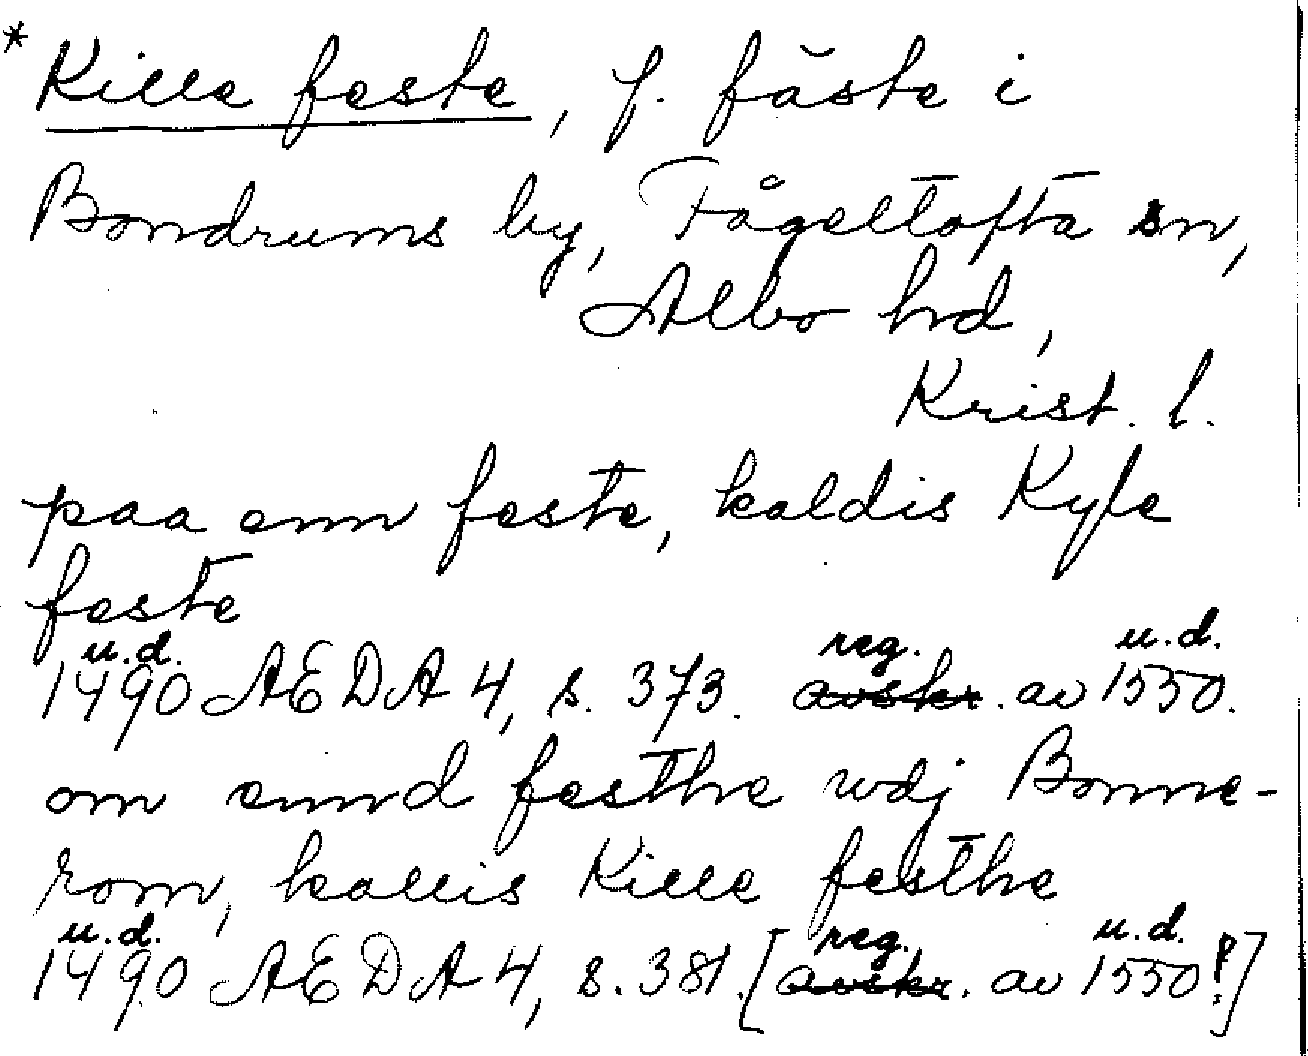 * Kille feste, f. fäste i
Bondrums by, Fågeltofta sn,
Albo hd,
Krist. l.
paa enn feste, kaldis Kyle
feste
u.d. reg. u.d.
1490 AEDA 4, s. 373. avskr. av 1550.
om ennd festhe wdj Bonne-
rom, kallis Kille festhe
u.d. reg. u.d.
1490 AEDA 4, s. 381. [avskr. av 1550!]